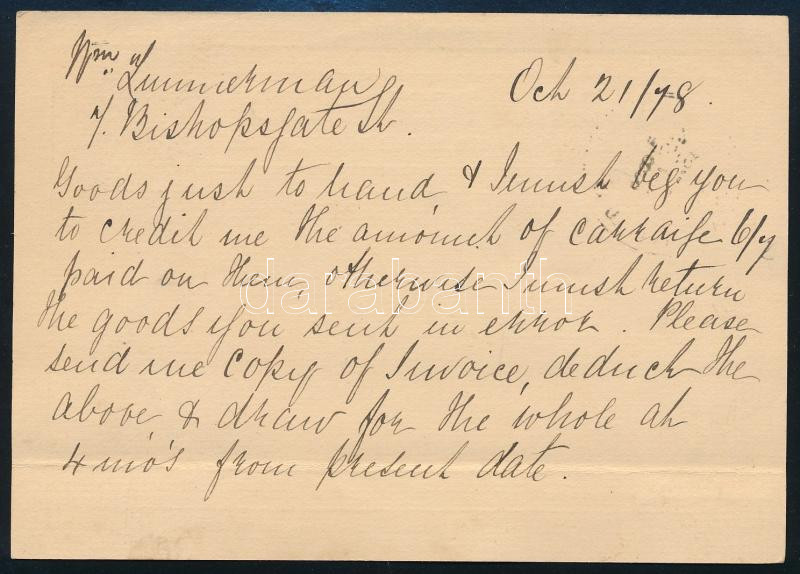 Wm Zimmerman
Oct 21/78.
7/. Bishopsgate St.
Goods just to hand, & I must beg you
to credit me the amount of carraige 6/7
paid on them, otherwise I must return
the goods you sent in error. Please
send me copy of Invoice, deduct the
above & draw for the whole at
4 mo's from present date.
darabanth